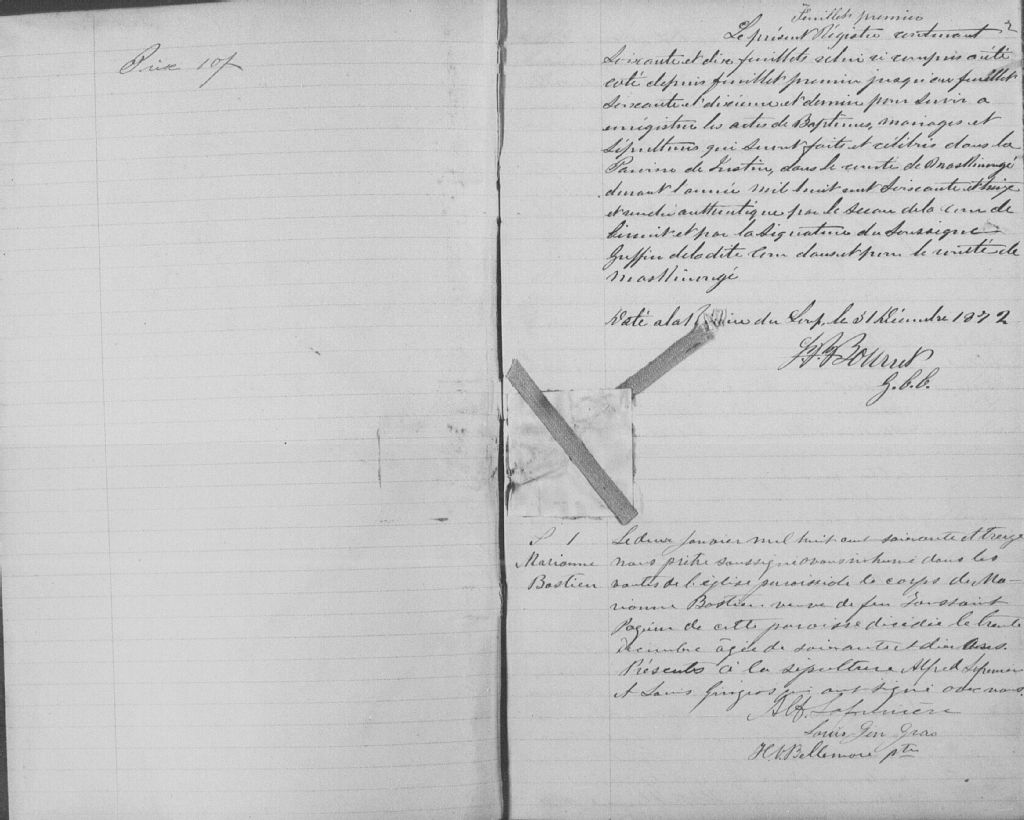 Prix 10/
Feuillets premier
Le présent Régistre contenant
Soixante et dix feuillets celui ci compris a été
coté depuis feuillet premier jusqu'au feuillet
Soixante et dixieme et dernier pour servir a
enrégistrer les actes de Baptemes, mariages et
Sépultures qui seront faits et célébrés dans la
Paroisse de Justin, dans le comté de Maskinongé
durant l'année mil huit cent Soixante et treize
et rendu authentique par le Sceau de la Cour de
Circuit et par la Signature du Soussigné
Greffier de la dite Cour dans et pour le comté de
Maskinongé
Daté a la Rivière du Loup, le 31 Décembre 1872
Bourret
G.C.C.
S 1
Marianne
Bastien
Le deux Janvier mil huit cent soixante et treize
nous prêtre soussigné avons inhumé dans les
voutes de l'église paroissiale le corps de Ma-
rianne Bastien veuve de feu Toussaint
de cette paroisse décédée le trente
décembre âgée de soixante et dix ans.
Présents à la sépulture Alfred Lafrenière
et Louis Gingras qui ont signé avec nous.
Alf. Lafrenière
Louis Gin Gras
H. V. Bellemare ptre